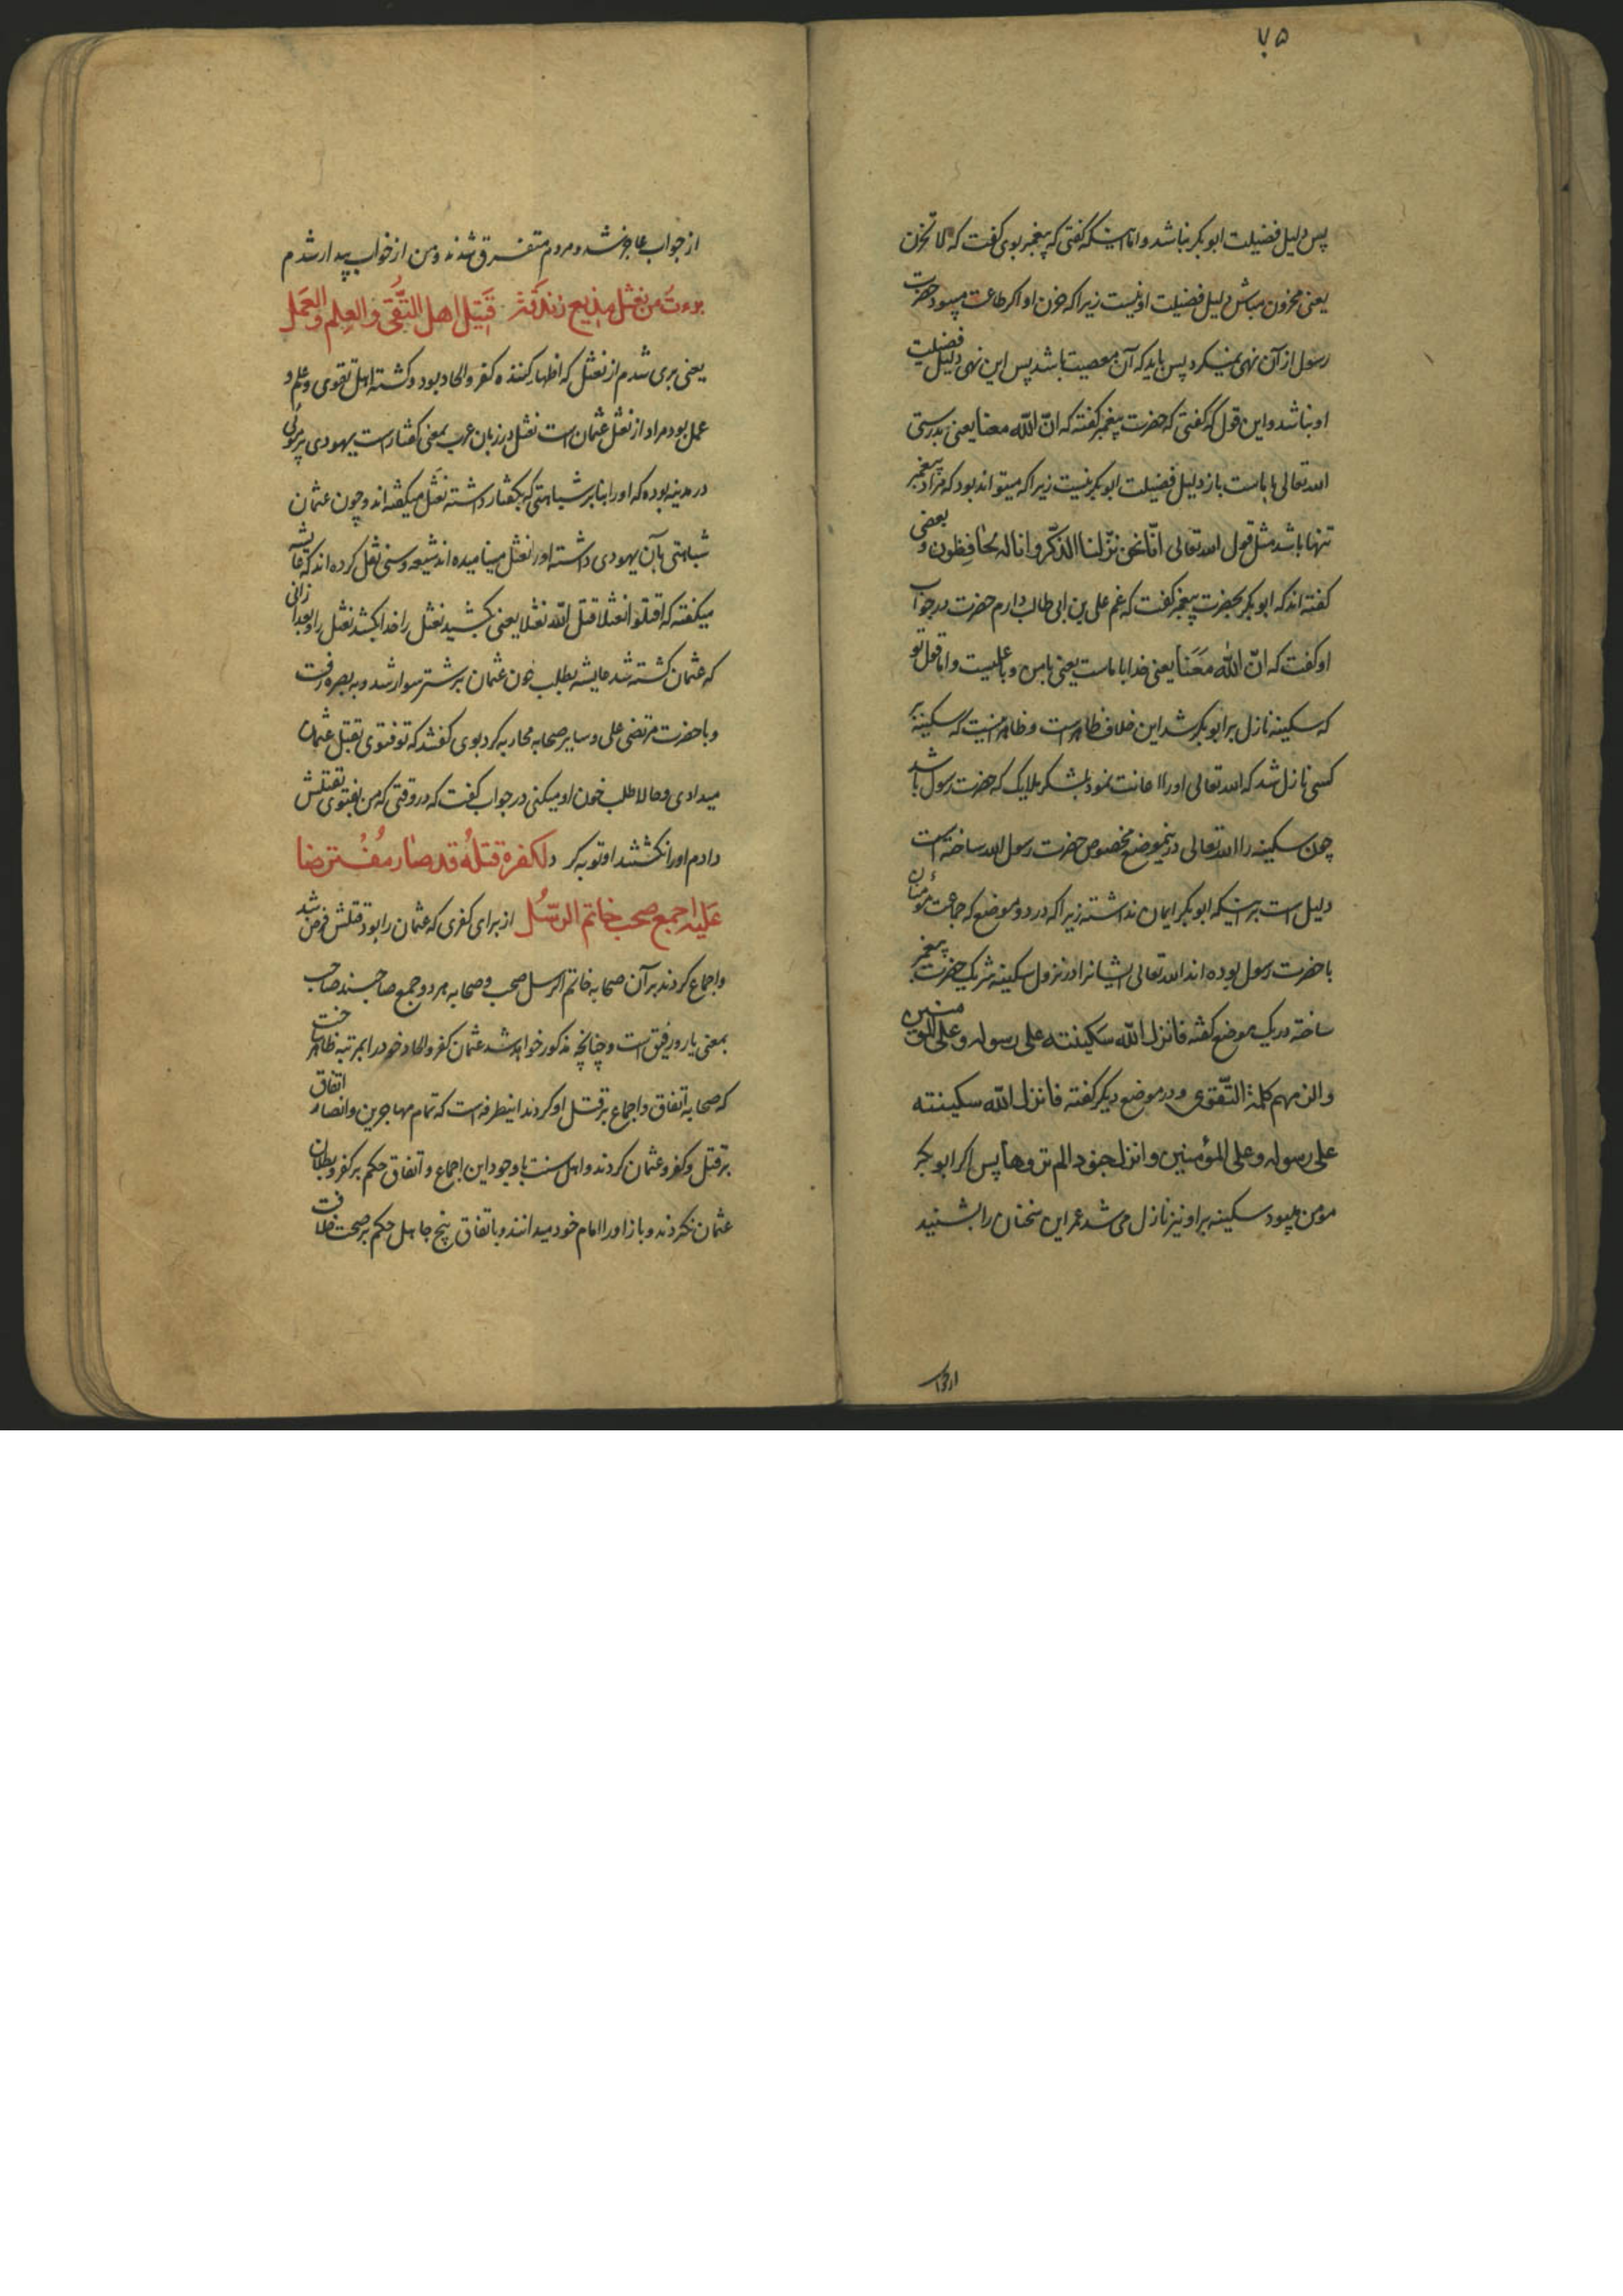 ۷۵
پس دلیل فضیلت ابوبکر نباشد و اما اینکه گفتی که پیغمبر بوی گفت که لا تحزن
یعنی محزون مباش دلیل فضیلت او نیست زیرا که حزن او اگر طاعت میبود حضرت
رسول از آن نهی نمیکرد پس باید که آن معصیت باشد پس این نهی دلیل فضیلت
او نباشد و این قول که گفتی که حضرت پیغمبر گفته که انّ الله معنا یعنی بدرستی
الله تعالی با ماست باز دلیل فضیلت ابوبکر نیست زیرا که میتواند بود که مراد پیغمبر
تنها باشد مثل قول الله تعالی انّا نحن نزّلنا الذّکر و انا له لحافظون و بعضی
گفته اند که ابوبکر بحضرت پیغمبر گفت که غم علی بن ابی طالب دارم حضرت در جواب
او گفت که انّ الله مَعَنا یعنی خدا با ماست یعنی با من و با علیست و اما قول تو
که سکینه نازل بر ابوبکر شد این خلاف ظاهر است و ظاهر اینست که سکینه بر
کسی نازل شد که الله تعالی او را اعانت نمود بلشکر ملایک که حضرت رسول باشد
چون سکینه را الله تعالی درینموضع مخصوص حضرت رسول الله ساخته است
دلیل است براینکه ابوبکر ایمان نداشته زیرا که در دو موضع که جماعت مؤمنان
با حضرت رسول بوده اند الله تعالی ایشانرا در نزول سکینه شریک حضرت پیغمبر
ساخته در یک موضع گفته فانزل الله سکینته علی رسوله و علی المؤمنین
والزمهم کلمة التّقوی و در موضع دیگر گفته فانزل الله سکینته
علی رسوله و علی المؤمنین و انزل جنودا لم تروها پس اگر ابوبکر
مؤمن میبود سکینه بر او نیز نازل می شد عمر این سخنان را بشنید
از جواب
از جواب عاجز شد و مردم متفرق شدند و من از خواب بیدار شدم
برءت من نعثل مذیع زندقة قتیل اهل التُّقی والعِلم والعَمل
یعنی بری شدم از نعثل که اظهار کننده کفر و الحاد بود و کشته اهل تقوی و علم و
عمل بود مراد از نعثل عثمان است نعثل در زبان عرب بمعنی کفتار است یهودی
در مدینه بوده که او را بنابر شباهتی که بکفتار داشته نعثل میگفته اند و چون عثمان
شباهتی بآن یهودی داشته او را نعثل مینامیده اند شیعه و سنی نقل کرده اند که عایشه
میگفته که اقتلوا نعثلا قتل الله نعثلا یعنی بکشید نعثل را خدا بکشد نعثل را و بعد از آنی
که عثمان کشته شد عایشه بطلب خون عثمان بر شتر سوار شد و به بصره رفت
و با حضرت مرتضی علی و سایر صحابه محاربه کرد بوی گفتند که تو فتوی بقتل عثمان
میدادی و حالا طلب خون او میکنی در جواب گفت که در وقتی که من فتوی بقتلش
دادم او را نکشتند او توبه کرد لکفره قتله قد صار مفترضا
عَلَیه اجمع صحب خاتم الرّسُل از برای کفری که عثمان را بود قتلش فرض شد
و اجماع کردند بر آن صحابه خاتم الرسل صحب و صحابه هر دو جمع صاحبند صاحب
بمعنی یار و رفیق است و چنانچه مذکور خواهد شد عثمان کفر و الحاد خود را بمرتبه ظاهر ساخت
که صحابه اتفاق و اجماع بر قتل او کردند اینطرفه است که تمام مهاجرین و انصار اتفاق
بر قتل و کفر و عثمان کردند و اهل سنت با وجود این اجماع و اتفاق حکم بر کفر و بطلان
عثمان نکردند و باز او را امام خود میدانند و باتفاق پنج جاهل حکم بر صحت خلافت